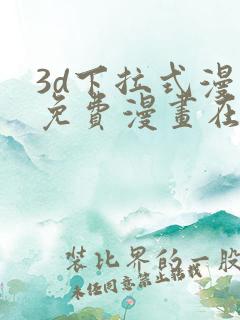 3d下拉式漫
免費漫畫在
装比界的一股
未经同意禁止转载